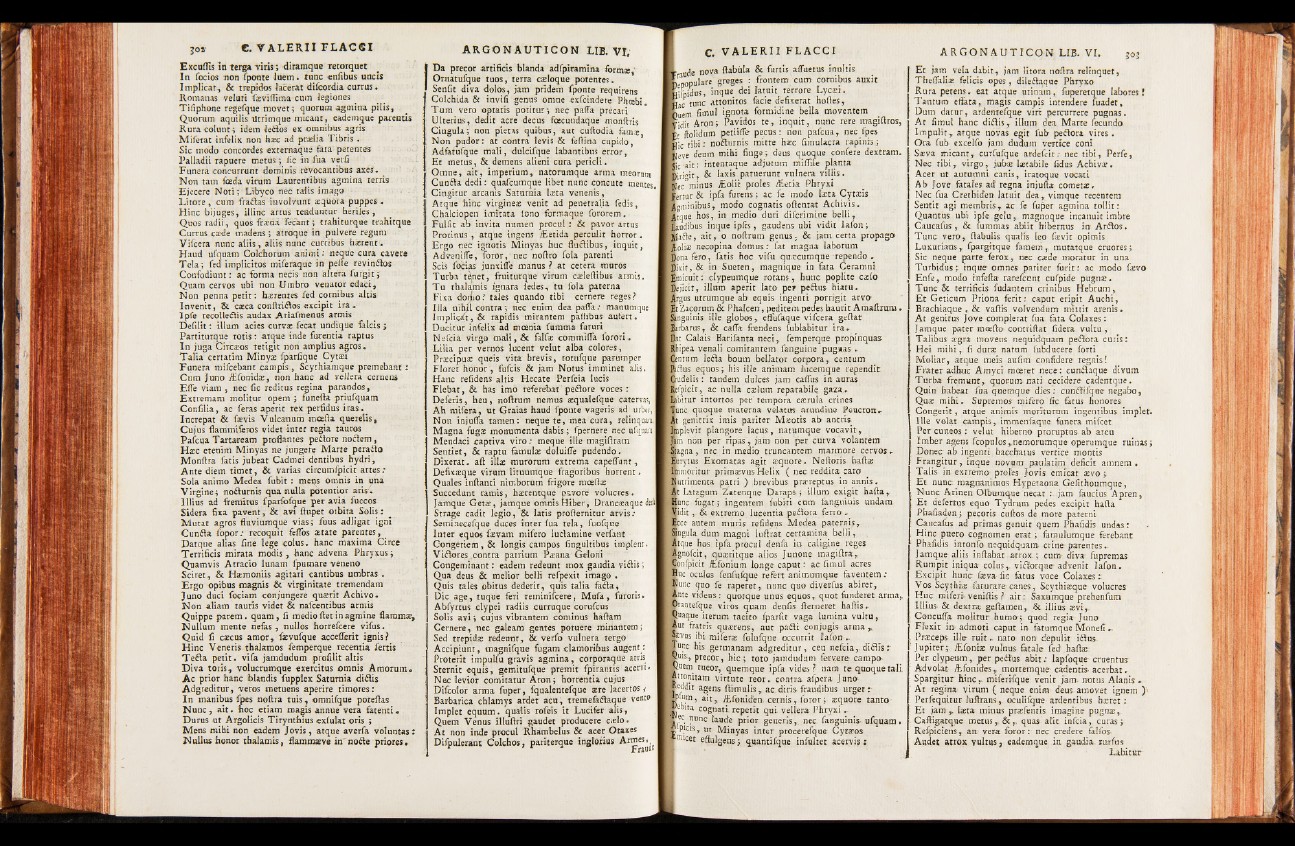 302 C. VALERII FLACCI
Excussis in terga viris; diramque retorquet
In socios non sponte luem. tunc ensibus uncis
Implicat, & trepidos lacerat discordia currus.
Romanas veluti sævissima cum legiones
Tisiphone regesque movet; quorum agmina pilis,
Quorum aquilis utrimque micant, eademque parentis
Rura colunt; idem lectos ex omnibus agris
Miserat infelix non hæc ad prælia Tibris.
Sic modo concordes externaque fata petentes
Palladii rapuere metus; sic in sua versi
Funera concurrunt dominis revocantibus axes.
Non tam fœda virum Laurentibus agmina terris
Ejecere Noti; Libyco nec talis imago
Litore, cum fractas involvunt æquora puppes.
Hinc bijuges, illinc artus tenduntur heriles,
Quos radii, quos fræna secant; trahiturque trahitque
Currus cæde madens; atroque in pulvere regum
Viscera nunc aliis, aliis nunc curribus hærent.
Haud usquam Colchorum animi: neque cura cavere
Tela; sed implicitos miseraque in peste revinctos
Confodiunt: ac forma necis non altera surgit;
Quam cervos ubi non Umbro venator edaci,
Non penna petit: hærentes sed cornibus altis
Invenit, & cæca constrictos excipit ira.
Ipse recollectis audax Ariasmenus armis
Desilit: illum acies curvæ secat undique falcis;
Partiturque rotis: atque inde furentia raptus
In juga Circæos tetigit non amplius agros.
Talia certatim Minyæ sparsique Cytæi
Funera miscebant campis, Scythiamque premebant:
Cum Juno Æsonidæ, non hanc ad vellera cernens
Esse viam, nec sic reditus regina parandos,
Extremam molitur opem; funesta priusquam
Consilia, ac feras aperit tex perfidus iras.
Increpat & sævis Vulcanum mœsta querelis,
Cujus flammiferos videt inter regia tauros
Pascua Tartaream proflantes pectore noctem,
Hæc etenim Minyas ne jungere Marte peracto
Monstra satis jubeat Cadmei dentibus hydri,
Ante diem timet, & varias circumspicit artes:
Sola animo Medea subit: mens omnis in una
Virgine; nocturnis qua nulla potentior aris.
Illius ad fremitus sparsosque per avia succos
Sidera fixa pavent, & avi stupet orbita Solis:
Mutat agros fluviumque vias; suus adligat igni
Cuncta sopor: recoquit fessos ætate parentes,
Datque alias sine lege colus. hanc maxima Circe
Terrificis mirata modis, hanc advena Phryxus;
Quamvis Atracio lunam spumare veneno
Sciret, & Hæmoniis agitari cantibus umbras.
Ergo opibus magnis & virginitate tremendam
Juno duci sociam conjungere quærit Achivo.
Non aliam tauris videt & nascentibus armis
Quippe parem. quam, si medio stet in agmine flammæ,
Nullum mente nefas, nullos horrescere visus.
Quid si cæcus amor, sævusque accesserit ignis?
Hinc Veneris thalamos semperque recentia sertis
Tecta petit. visa jamdudum prosilit altis
Diva toris, volucrumque exercitus omnis Amorum.
Ac prior hanc blandis supplex Saturnia dictis
Adgreditur, veros metuens aperire timores:
In manibus spes nostra tuis, omnisque potestas
Nunc, ait. hoc etiam magis annue vera fatenti.
Durus ut Argolicis Tirynthius exsulat oris;
Mens mihi non eadem Jovis, atque aversa voluntas:
Nullus honor thalamis, flammæve in nocte priores.
ARGONAUTICON LIB. VI.
Da precor artificis blanda adspiramina formæ,
Ornatusque tuos, terra cæloque potentes.
Sensit diva dolos, jam pridem sponte requirens
Colchida & invisi genus omne exscindere Phœbi.
Tum vero optatis potitur; nec passa precari
Ulterius, dedit acre decus fœcundaque monstris
Cingula; non pietas quibus, aut custodia famæ,
Non pudor: at contra levis & festina cupido,
Adfatusque mali, dulcisque labantibus error,
Et metus, & demens alieni cura pericli.
Omne, ait, imperium, natorumque arma meorum
Cuncta dedi: quascumque libet nunc concute mentes.
Cingitur arcanis Saturnia læta venenis,
Atque hinc virgineæ venit ad penetralia sedis,
Chalciopen imitata sono formaque sororem.
Fulsit ab invita numen procul: & pavor artus
Protinus, atque ingens Æetida perculit horror.
Ergo nec ignotis Minyas huc fluctibus, inquit,
Advenisse, soror, nec nostro sola parenti
Scis socias junxisse manus? at cetera muros
Turba tenet, fruiturque virum cælestibus armis.
Tu thalamis ignara sedes, tu sola paterna
Fixa domo: tales quando tibi cernere reges?
Illa nihil contra; nec enim dea passa: manumque
Implicat, & rapidis mirantem passibus aufert.
Ducitur infelix ad mœnia summa futuri
Nescia virgo mali, & falsæ commissa sorori.
Lilia per vernos lucent velut alba colores,
Præcipuæ queis vita brevis, totusque parumper
Floret honor, fuscis & jam Notus imminet alis.
Hanc residens altis Hecate Perseia lucis
Flebat, & has imo referebat pectore voces:
Deseris, heu, nostrum nemus æqualesque catervas,
Ah misera, ut Graias haud sponte vageris ad urbes,
Non injussa tamen: neque te, mea cura, relinquam.
Magna fugæ monumenta dabis; spernere nec usquam
Mendaci captiva viro: meque ille magistram
Sentiet, & raptu famulæ doluisse pudendo.
Dixerat. ast illæ murorum extrema capessunt,
Defixæque virum lituumque fragoribus horrent.
Quales instanti nimborum frigore mœstæ
Succedunt ramis, hærentque pavore volucres.
Jamque Getæ, jamque omnis Hiber, Drancæaque densa
Strage cadit legio, & latis prosternitur arvis:
Seminecesque duces inter sua tela, suosque
Inter equos sævam misero luctamine versant
Congeriem, & longis campos singultibus implent.
Victores contra patrium Pæana Geloni
Congeminant: eadem redeunt mox gaudia victis;
Qua deus & melior belli respexit imago.
Quis tales obitus dederit, quis talia facta,
Dic age, tuque feri reminiscere, Musa, furoris.
Absyrtus clypei radiis curruque coruscus
Solis avi; cujus vibrantem cominus hastam
Cernere, nec galeam gentes potuere minantem;
Sed trepidæ redeunt, & verso vulnera tergo
Accipiunt, magnisque fugam clamoribus augent:
Proterit impulsu gravis agmina, corporaque atris
Sternit equis, gemitusque premit spirantis acervi.
Nec levior comitatur Aron; horrentia cujus
Discolor arma super, squalentesque ære lacertos
Barbarica chlamys ardet acu, tremefactaque vento
Implet equum. qualis roseis it Lucifer alis,
Quem Venus illustri gaudet producere cælo.
At non inde procul Rhambelus & acer Otaxes
Dispulerant Colchos, pariterque inglorius Armes,
Fraude
C. VALERII FLACCI
Fraude nova stabula & furtis assuetus inultis
Depopulare greges: frontem cum cornibus auxit
Hispidus, inque dei latuit terrore Lycæi.
Hac tunc attonitos facie defixerat hostes,
Quem simul ignota formidine bella moventem
Vidit Aron; Pavidos te, inquit, nunc rere magistros,
Et stolidum petiisse pecus: non pascua, nec spes
Hic tibi: nocturnis mitte hæc simulacra rapinis;
Neve deum mihi finge; deus quoque consere dextram.
Sic ait: intentaque adjutum missile planta
Dirigit, & laxis patuerunt vulnera villis.
Nec minus Æolii proles Æetia Phryxi
Fertur & ipsa furens: ac se modo læta Cytæis
Agminibus, modo cognatis ostentat Achivis.
Atque hos, in medio duri discrimine belli,
Laudibus inque ipsis, gaudens ubi vidit Iason;
Macte, ait, o nostrum genus, & jam certa propago
Æoliæ necopina domus: sat magna laborum
Dona fero, satis hoc visu quæcumque rependo.
Dixit, & in Sueten, magnique in fata Ceramni
Emicuit: clypeumque rotans, hunc poplite cæso
Dejicit, illum aperit lato per pectus hiatu.
Argus utrumque ab equis ingenti porrigit arvo
Et Zacorum & Phalcen, peditem pedes haurit Amastrum.
Sanguinis ille globos, effusaque viscera gestat
Barbarus, & cassæ frendens sublabitur ira.
Dat Calais Barisanta neci, semperque propinquas
Rhipea venali comitantem sanguine pugnas.
Centum lecta boum bellator corpora, centum
Pactus equos; his ille animam lucemque rependit
Crudelis: tandem dulces jam cassus in auras
Respicit, ac nulla cælum reparabile gaza.
Labitur intortos per tempora cærula crines
Tunc quoque materna velatus arundine Peucron.
At genitrix imis pariter Mæotis ab antris
Implevit plangore lacus, natumque vocavit,
Jam non per ripas, jam non per curva volantem
Stagna, nec in medio truncantem marmore cervos.
Eurytus Exomatas agit æquore. Nestoris hastæ
Immoritur primævus Helix (nec reddita caro
Nutrimenta patri) brevibus præreptus in annis.
At Latagum Zatenque Daraps; illum exigit hasta,
Hunc fugat; ingentem subiti cum sanguinis undam
Vidit, & extremo lucentia pectora ferro.
Ecce autem muris residens Medea paternis,
Singula dum magni lustrat certamina belli,
Atque hos ipsa procul densa in caligine reges
Agnoscit, quæritque alios Junone magistra,
Conspicit Æsonium longe caput: ac simul acres
Huc oculos sensusque refert animumque faventem:
Nunc quo se raperet, nunc quo diversus abiret,
Ante videns: quotque unus equos, quot funderet arma,
Orantesque viros quam densis sterneret hastis.
Quaque iterum tacito sparsit vaga lumina vultu,
Aut fratris quærens, aut pacti conjugis arma,
Sævus ibi miseræ solusque occurrit Iason.
Tunc his germanam adgreditur, ceu nescia, dictis:
Quis, precor, hic; toto jamdudum fervere campo
Quem tueor, quemque ipsa vides? nam te quoque tali
Attonitam virtute reor. contra aspera Juno
Reddit agens stimulis, ac diris fraudibus urget:
Ipsum, ait, Æsoniden cernis, soror; æquore tanto
Debita cognati repetit qui vellera Phryxi.
Nec nunc laude prior generis, nec sanguinis usquam.
Aspicis, ut Minyas inter proceresque Cytæos
Emicet effulgens; quantisque insultet acervis:
ARGONAUTICON LIB. VI. 303
Et jam vela dabit, jam litora nostra relinquet,
Thessaliæ felicis opes, dilectaque Phryxo
Rura petens. eat atque utinam, superetque labores!
Tantum effata, magis campis intendere suadet,
Dum datur, ardentesque viri percurrere pugnas.
At simul hanc dictis, illum dea Marte secundo
Impulit, atque novas egit sub pectora vires.
Ora sub excelso jam dudum vertice coni
Sæva micant, cursusque ardescit: nec tibi, Perse,
Nec tibi, virgo, jubæ lætabile sidus Achivæ.
Acer ut autumni canis, iratoque vocati
Ab Jove fatales ad regna injusta cometæ.
Nec sua Crethiden latuit dea, vimque recentem
Sentit agi membris, ac se super agmina tollit:
Quantus ubi ipse gelu, magnoque incanuit imbre
Caucasus, & summas abiit hibernus in Arctos.
Tunc vero, stabulis qualis leo sævit opimis
Luxurians, spargitque famem, mutatque cruores;
Sic neque parte ferox, nec cæde moratur in una
Turbidus; inque omnes pariter furit: ac modo sævo
Ense, modo infesta rarescunt cuspide pugnæ.
Tunc & terrificis sudantem crinibus Hebrum,
Et Geticum Priona ferit: caput eripit Auchi,
Brachiaque, & vastis volvendum mittit arenis.
At genitus Jove complerat sua fata Colaxes:
Jamque pater mœsto contristat sidera vultu,
Talibus ægra movens nequidquam pectora curis:
Hei mihi, si duræ natum subducere sorti
Moliar, atque meis ausim confidere regnis!
Frater adhuc Amyci mœret nece: cunctaque divum
Turba fremunt, quorum nati cecidere cadentque.
Quin habeat sua quemque dies: cunctisque negabo,
Quæ mihi. Supremos misero sic fatus honores
Congerit, atque animis moriturum ingentibus implet.
Ille volat campis, immensaque funera miscet
Per cuneos: velut hiberno proruptus ab arcu
Imber agens scopulos, nemorumque operumque ruinas;
Donec ab ingenti bacchatus vertice montis
Frangitur, inque novum paulatim deficit amnem.
Talis in extremo proles Jovis emicat ævo;
Et nunc magnanimos Hypetaona Gesithoumque,
Nunc Arinen Olbumque necat: jam saucius Apren,
Et desertus equo Tydrum pedes excipit hasta
Phasiaden; pecoris custos de more paterni
Caucasus ad primas genuit quem Phasidis undas:
Hinc puero cognomen erat; famulumque ferebant
Phasidis intonso nequidquam crine parentes.
Jamque aliis instabat atrox; cum diva supremas
Rumpit iniqua colus, victorque advenit Iason.
Excipit hunc sæva sic fatus voce Colaxes:
Vos Scythiæ saturare canes, Scythiæque volucres
Huc miseri venistis? ait: Saxumque prehensum
Illius & dextræ gestamen, & illius ævi,
Concussa molitur humo; quod regia Juno
Flexit in admoti caput in fatumque Monesi.
Præceps ille ruit. nato non depulit ictus
Jupiter; Æsoniæ vulnus fatale sed hastæ
Per clypeum, per pectus abit; lapsoque cruentus
Advolat Æsonides, mortemque cadentis acerbat.
Spargitur hinc, miserisque venit jam notus Alanis.
At regina virum (neque enim deus amovet ignem)
Persequitur lustrans, oculisque ardentibus hæret:
Et jam, læta minus præsentis imagine pugnæ,
Castigatque metus, &, quas alit inscia, curas;
Respiciens, an vera soror: nec credere falsos
Audet atrox vultus, eademque in gaudia rursus
Labitur